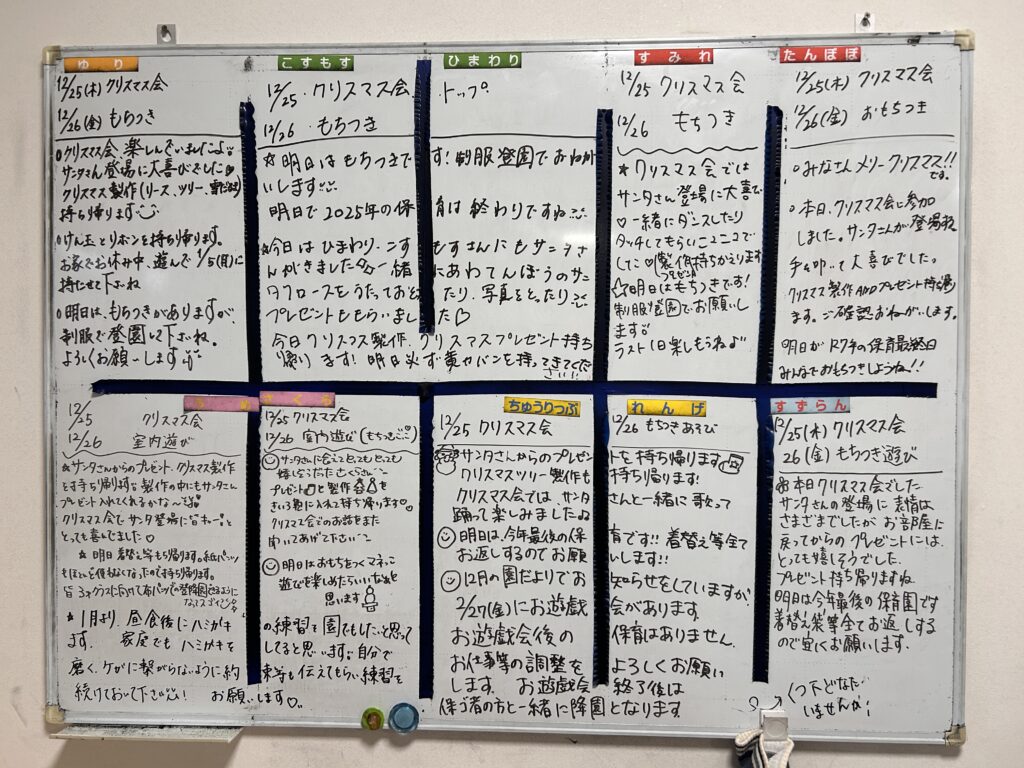 ゆり
12/25(木) クリスマス会
12/26(金) もちつき
○クリスマス会、楽しんでいましたよ♪
サンタさん登場に大喜びでした♡
クリスマス製作(リース、ツリー、
持ち帰ります
○けん玉とリボンを持ち帰ります。
お家でお休み中、遊んで1/5(月)に
持たせて下さいね
○明日は、もちつきがありますが、
制服で登園して下さいね。
よろしくお願いします
こすもす
12/25・クリスマス会
12/26・もちつき
ひまわり
トップ
☆明日はもちつきです!制服登園でおねが
いします
明日で2025年の保育は終わりですね
☆今日はひまわり、こすもすさんにもサンタさ
んがきました 一緒にあわてんぼうのサン
タクロースをうたっておどったり、写真をとったり
プレゼントももらいました♡
今日クリスマス製作、クリスマスプレゼント持ち
帰ります!明日必ず黄カバンを持ってきてくだ
さい!!
すみれ
12/25 クリスマス会
12/26 もちつき
★クリスマス会では
サンタさん登場に大喜び
♡一緒にダンスしたり
タッチしてもらいニコニコで
した♡ 製作持ちかえります
プレゼント
☆明日はもちつきです!
制服登園でお願いし
ます
ラスト1日楽しもうね♪
たんぽぽ
12/25(木) クリスマス会
12/26(金) おもちつき
○みなさんメリークリスマス!!
です。
○本日、クリスマス会に参加
しました。サンタさんが登場
手を叩いて大喜びでした。
クリスマス製作ANDプレゼント持ち帰り
ます。ご確認おねがいします。
明日がR7年の保育最終日
みんなでおもちつきしようね!!
うめ
12/25 クリスマス会
12/26 室内遊び
★サンタさんからのプレゼント、クリスマス製作
とす持ち帰ります。製作の中にもサンタさん
プレゼント入れてくれるかな〜
クリスマス会でサンタ登場に
とっても喜んでました♡
★明日着替え等も持ち帰ります。紙パンツ
持ち帰ります。
★1月より、昼食後にハミガキの練習を園でもしたいと思って
ます。家庭でもハミガキをしてると思います。自分で
磨く、ケガに繋がらないように約束等も伝えてもらい練習を
続けておって下さい! お願いします♡。
さくら
12/25 クリスマス会
12/26 室内遊び(もちつきごっこ)
サンタさんに会えてとってもとっても
嬉しそうだったさくらさん
プレゼントと製作を
きいろ袋に入れて持ち帰ります♡
クリスマス会でのお話をまた
聞いてあげて下さい〜
明日はおもちをつくマネっこ
遊びを楽しめたらいいなぁと
思います
ちゅうりっぷ
12/25 クリスマス会
れんげ
12/26 もちつきあそび
サンタさんからのプレゼントを持ち帰ります
クリスマスツリー製作も持ち帰ります!
クリスマス会では、サンタさんと一緒に歌って
踊って楽しみましたね
明日は、今年最後の保育です!!着替え等全て
お返しするのでお願いします!!
12月の園だよりでお知らせをしていますが、
2/27(金)にお遊戯会があります。
お遊戯会後の保育はありません。
お仕事等の調整をよろしくお願い
します。 お遊戯会終了後は
保ゴ者の方と一緒に降園となります
すずらん
12/25(木) クリスマス会
26(金) もちつき遊び
本日クリスマス会でした
サンタさんの登場に表情は
さまざまでしたがお部屋に
戻ってからのプレゼントには、
とっても嬉しそうでした。
プレゼント持ち帰りますね
明日は今年最後の保育園です
着替え袋等全てお返しする
ので宜しくお願いします。
くつ下どなた
いませんか